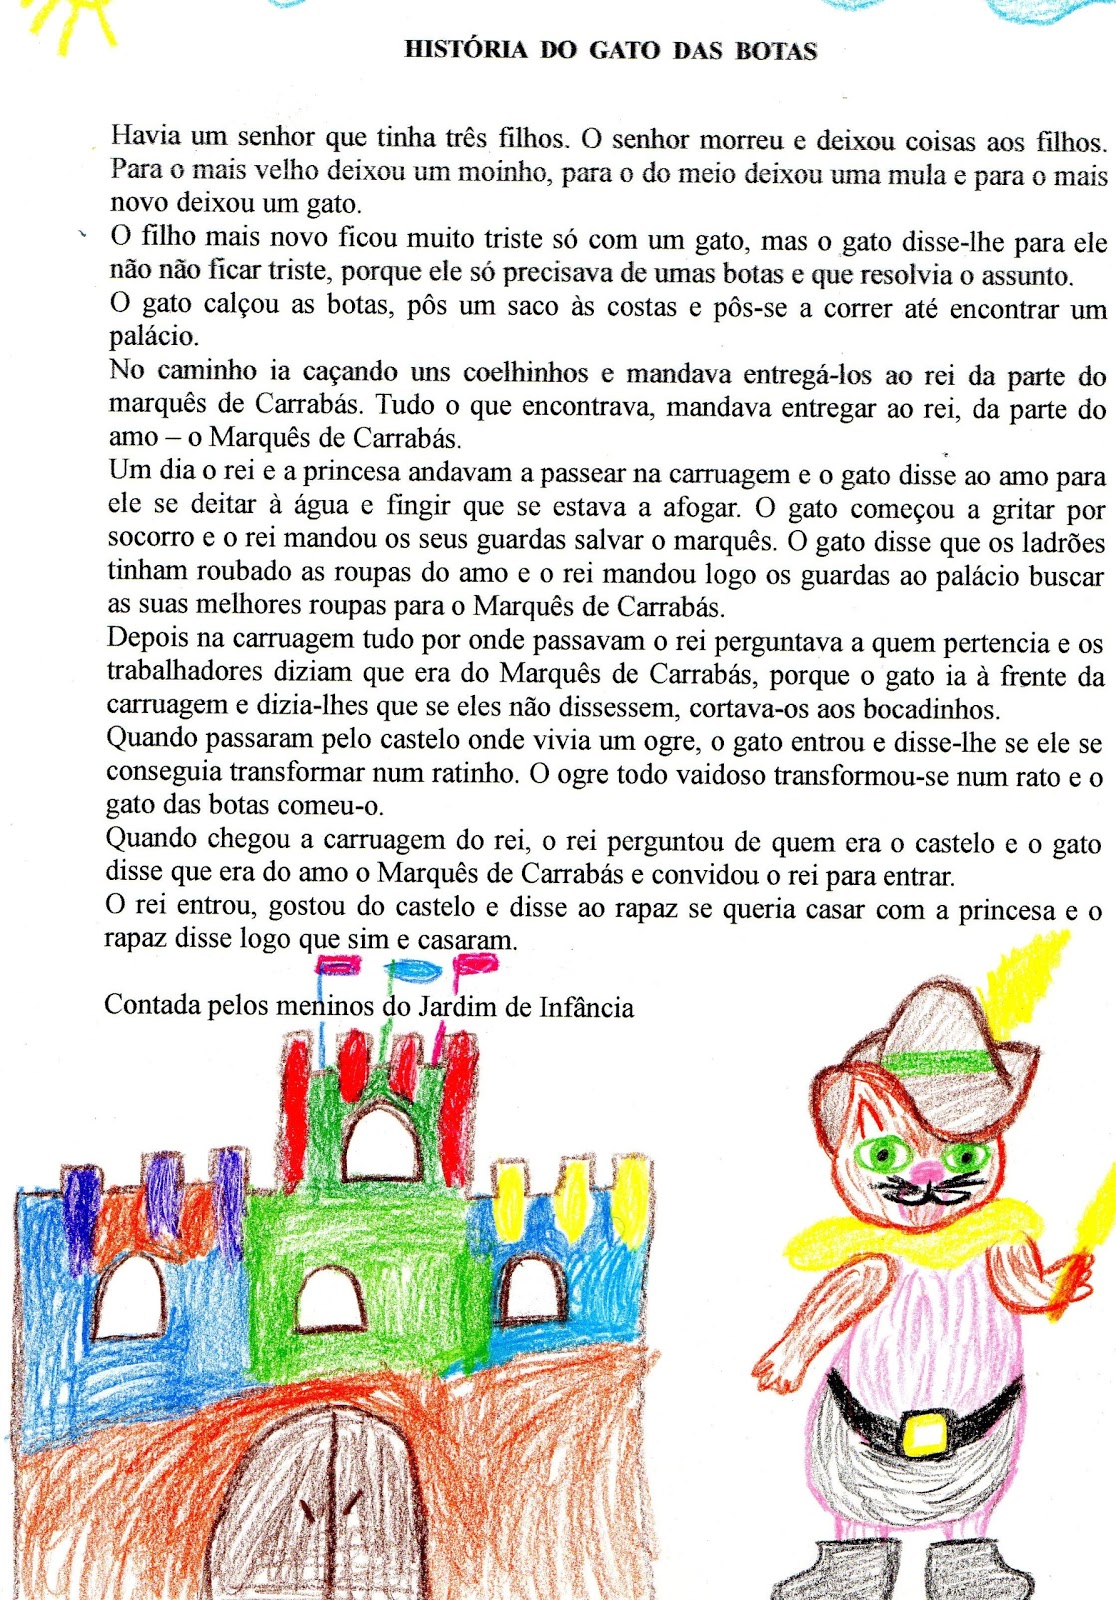 HISTÓRIA DO GATO DAS BOTAS
Havia um senhor que tinha três filhos. O senhor morreu e deixou coisas aos filhos.
Para o mais velho deixou um moinho, para o do meio deixou uma mula e para o mais
novo deixou um gato.
O filho mais novo ficou muito triste só com um gato, mas o gato disse-lhe para ele
não não ficar triste, porque ele só precisava de umas botas e que resolvia o assunto.
O gato calçou as botas, pôs um saco às costas e pôs-se a correr até encontrar um
palácio.
No caminho ia caçando uns coelhinhos e mandava entregá-los ao rei da parte do
marquês de Carrabás. Tudo o que encontrava, mandava entregar ao rei, da parte do
amo – o Marquês de Carrabás.
Um dia o rei e a princesa andavam a passear na carruagem e o gato disse ao amo para
ele se deitar à água e fingir que se estava a afogar. O gato começou a gritar por
socorro e o rei mandou os seus guardas salvar o marquês. O gato disse que os ladrões
tinham roubado as roupas do amo e o rei mandou logo os guardas ao palácio buscar
as suas melhores roupas para o Marquês de Carrabás.
Depois na carruagem tudo por onde passavam o rei perguntava a quem pertencia e os
trabalhadores diziam que era do Marquês de Carrabás, porque o gato ia à frente da
carruagem e dizia-lhes que se eles não dissessem, cortava-os aos bocadinhos.
Quando passaram pelo castelo onde vivia um ogre, o gato entrou e disse-lhe se ele se
conseguia transformar num ratinho. O ogre todo vaidoso transformou-se num rato e o
gato das botas comeu-o.
Quando chegou a carruagem do rei, o rei perguntou de quem era o castelo e o gato
disse que era do amo o Marquês de Carrabás e convidou o rei para entrar.
O rei entrou, gostou do castelo e disse ao rapaz se queria casar com a princesa e o
rapaz disse logo que sim e casaram.
Contada pelos meninos do Jardim de Infância